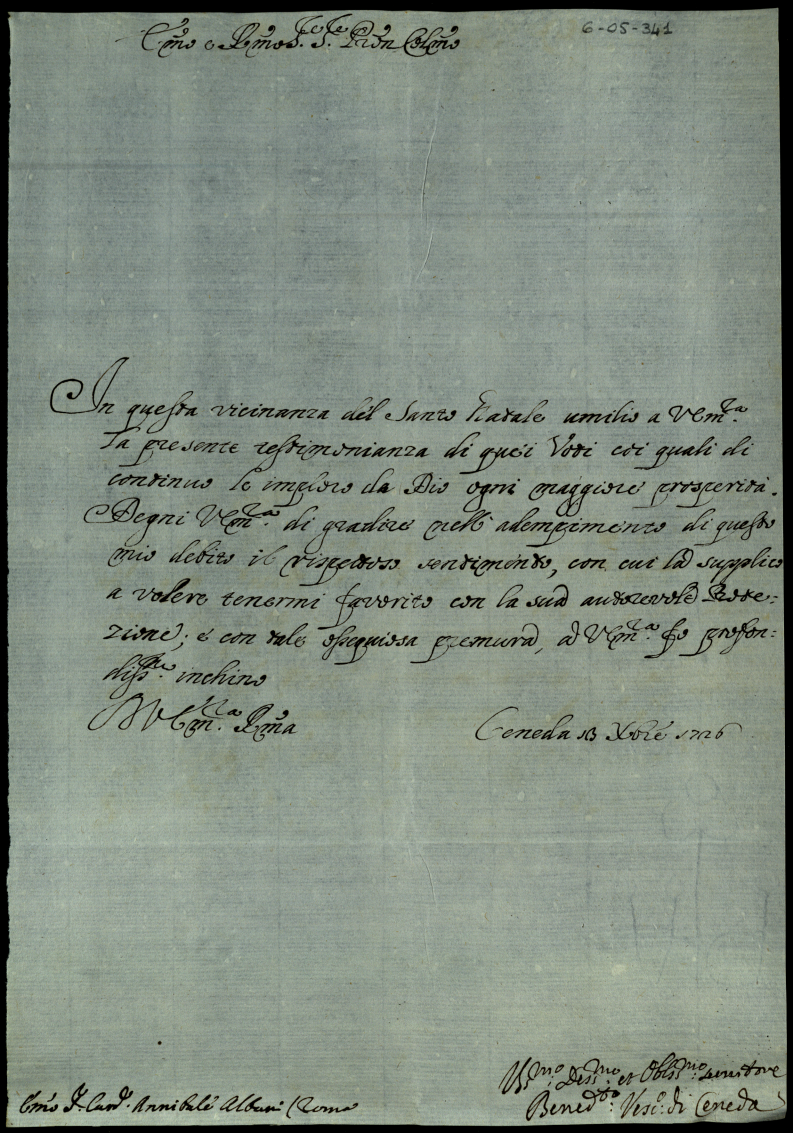 6-05-341
Emo e Rmo Sr. Sr. Pron Colmo
In questa vicinanza del Santo Natale umilio a VEmza.
la presente testimonianza di quei Voti coi quali di
continuo le imploro da Dio ogni maggiore prosperità.
Degni VEmza. di gradire nell'adempimento di questo
mio debito il rispettoso sentimento, con cui la supplico
a volere tenermi favorito con la sua autorevole Prote:
zione; e con tale ossequiosa premura, a VEmza. fo profon:
diss.mo inchino
Di VEmza. Rma
Ceneda 13 Xbre 1726
Umo. Devmo. et Oblmo. servitore
Bened.to Vesc.o di Ceneda
Emo S. Card. Annibale Albani (Roma